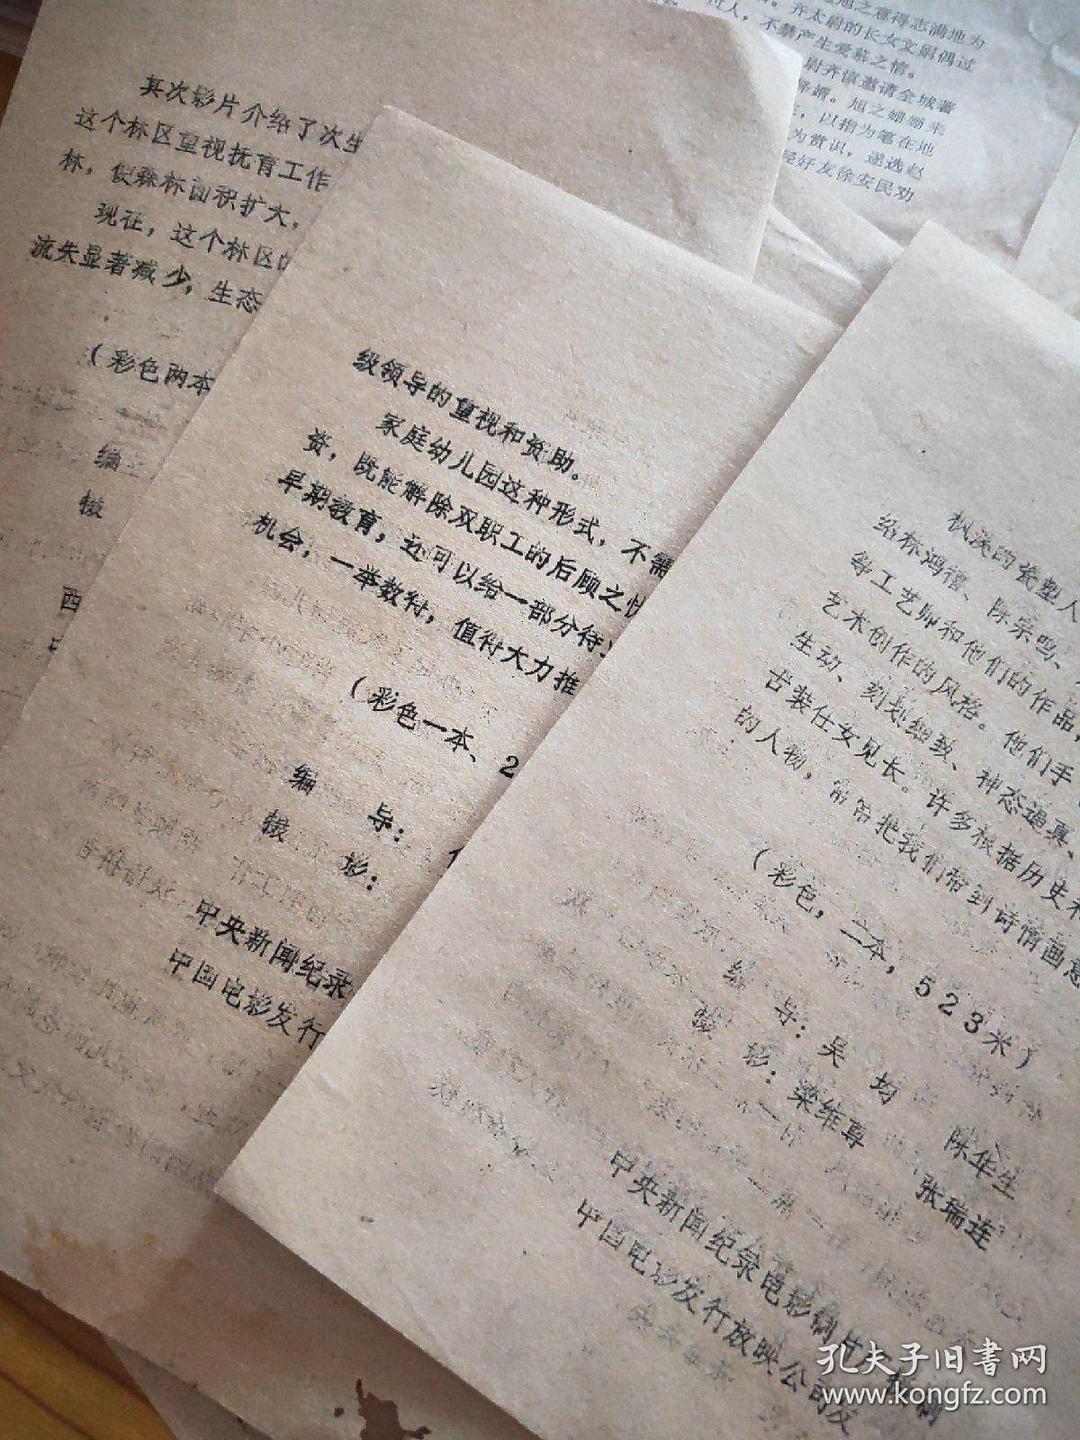 旭之意得志满地为
齐太尉的长女文娟偶过
人，不禁产生爱慕之情。
尉齐慎邀请全城著
婿。旭之姗姗来
，以指为笔在地
为赏识，遂选赵
经好友徐安民劝
其次影片介绍了次生
这个林区重视抚育工作
林，使森林面积扩大，
现在，这个林区
流失显著减少，生态
（彩色两本
编
摄
西
级领导的重视和资助。
家庭幼儿园这种形式，不需
资，既能解除双职工的后顾之忧
早期教育，还可以给一部分待
机会，一举数得，值得大力推
（彩色一本、2
编　导：
摄　影：
中央新闻纪录
中国电影发行
枫溪的瓷塑人
绍林鸿禧、陈宗鸣、
等工艺师和他们的作品，
艺术创作的风格。他们手
生动、刻划细致、神态逼真、
古装仕女见长。许多根据历史
的人物，常常把我们带到诗情画意
（彩色，二本，523米）
编　导：吴　均　陈华生
摄　影：梁维尊　张瑞连
中央新闻纪录电影制片厂摄制
中国电影发行放映公司发
孔夫子旧书网
www.kongfz.com